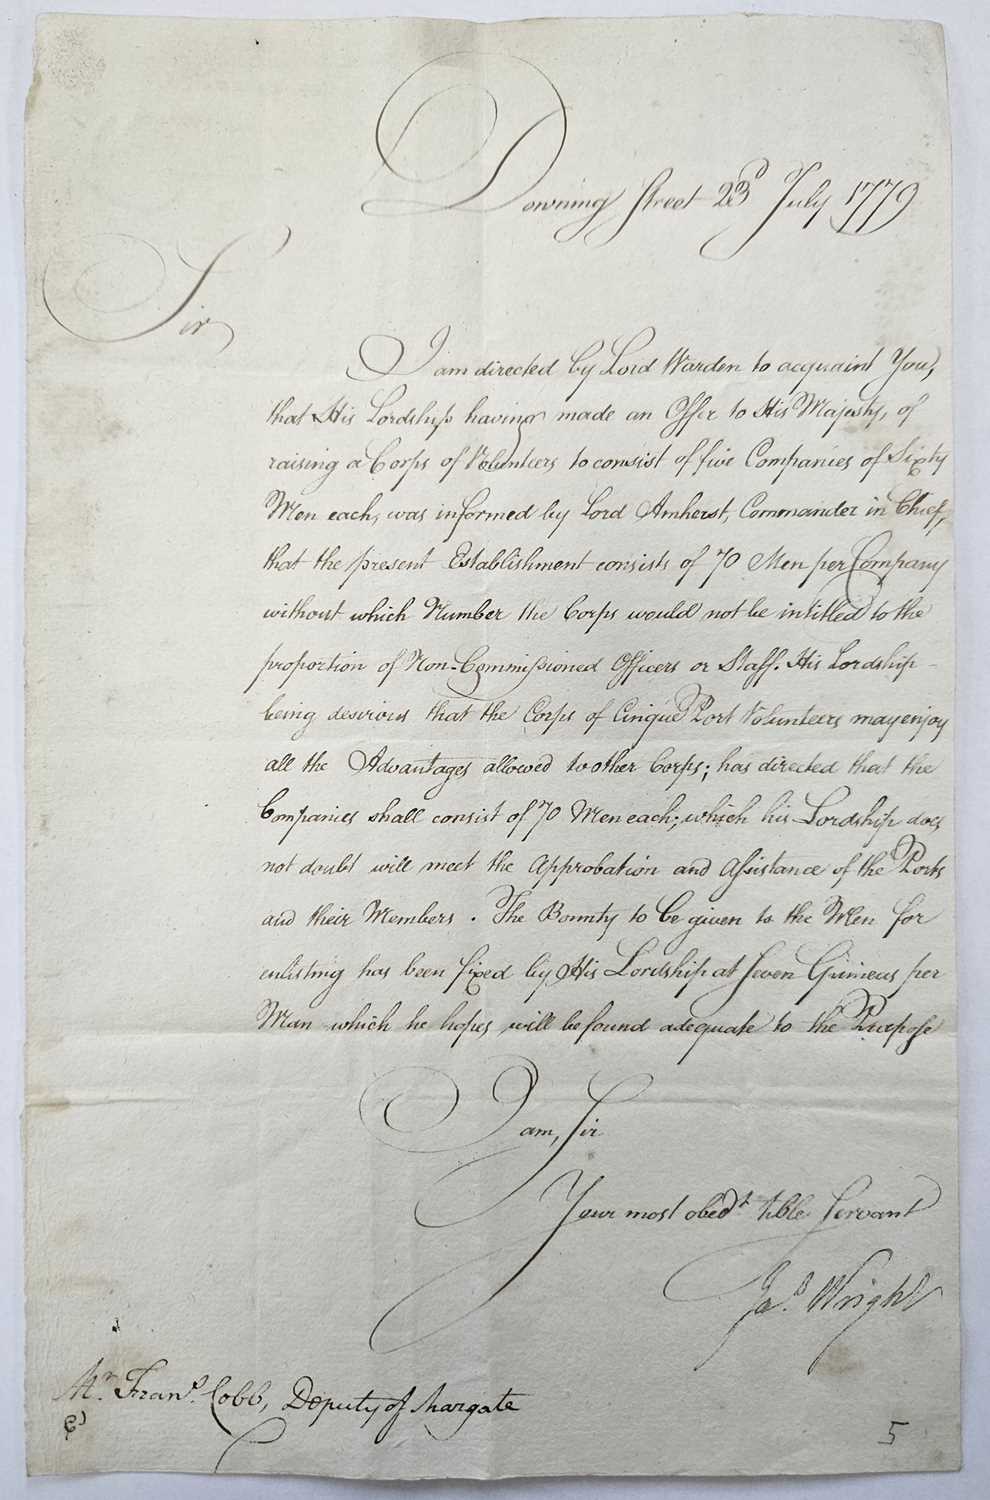 Downing Street 23d July 1779
Sir
I am directed by Lord Warden to acquaint You,
that His Lordship having made an Offer to His Majesty, of
raising a Corps of Volunteers to consist of five Companies of Sixty
Men each, was informed by Lord Amherst, Commander in Chief,
that the present Establishment consists of 70 Men per Company
without which Number the Corps would not be intitled to the
proportion of Non-Commissioned Officers or Staff. His Lordship
being desirous that the Corps of Cinque Port Volunteers may enjoy
all the Advantages allowed to other Corps; has directed that the
Companies shall consist of 70 Men each; which his Lordship does
not doubt will meet the Approbation and Assistance of the Ports
and their Members. The Bounty to be given to the Men for
enlisting has been fixed by His Lordship at Seven Guineas per
Man which he hopes will be found adequate to the Purpose
I am, Sir
Your most obedt. hble Servant
Jas. Wright
Mr. Frans. Cobb, Deputy of Margate
5